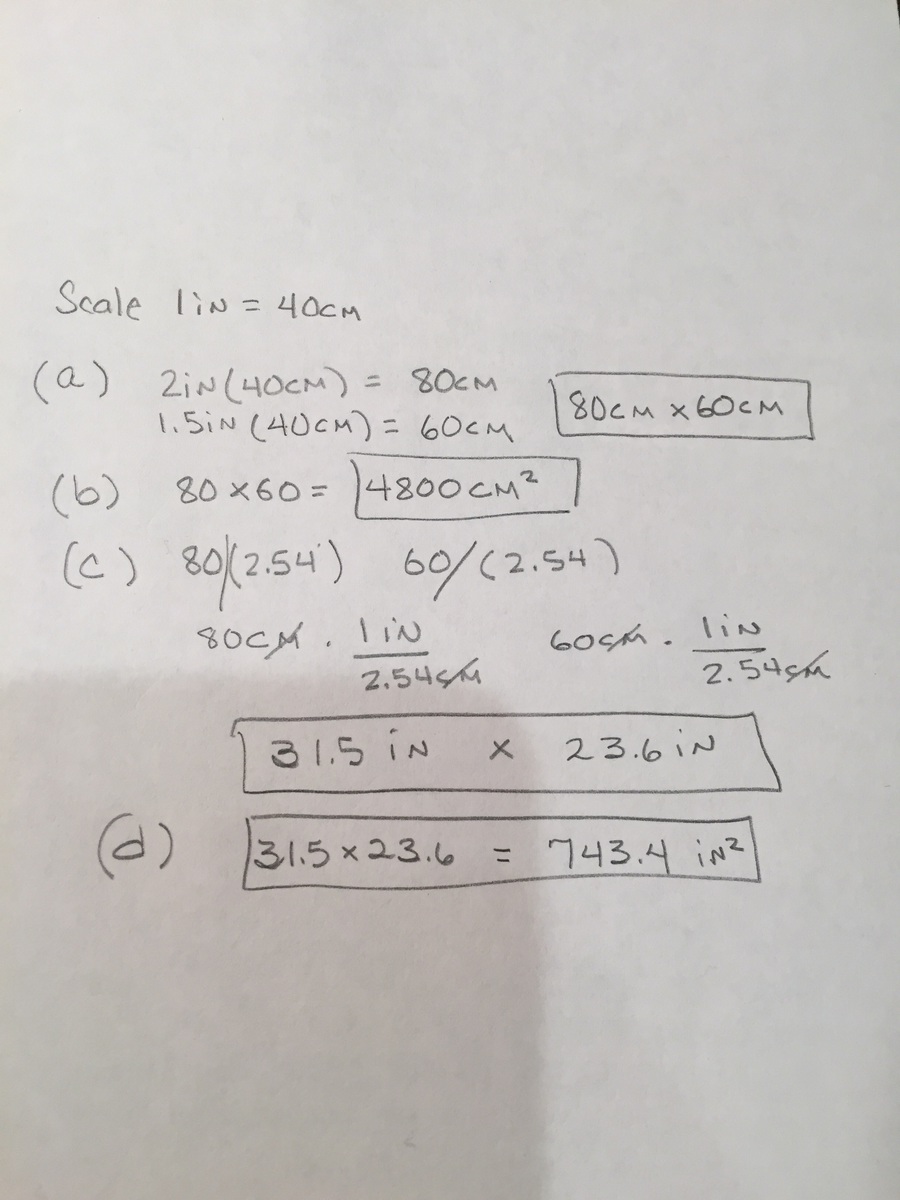 Scale 1in = 40cm
(a) 2in(40cm) = 80cm
1.5in(40cm) = 60cm
80cm x 60cm
(b) 80 x 60 = 4800cm²
(c) 80/(2.54) 60/(2.54)
80cm . 1in/2.54cm 60cm . 1in/2.54cm
31.5 in x 23.6in
(d) 31.5 x 23.6 = 743.4 in²